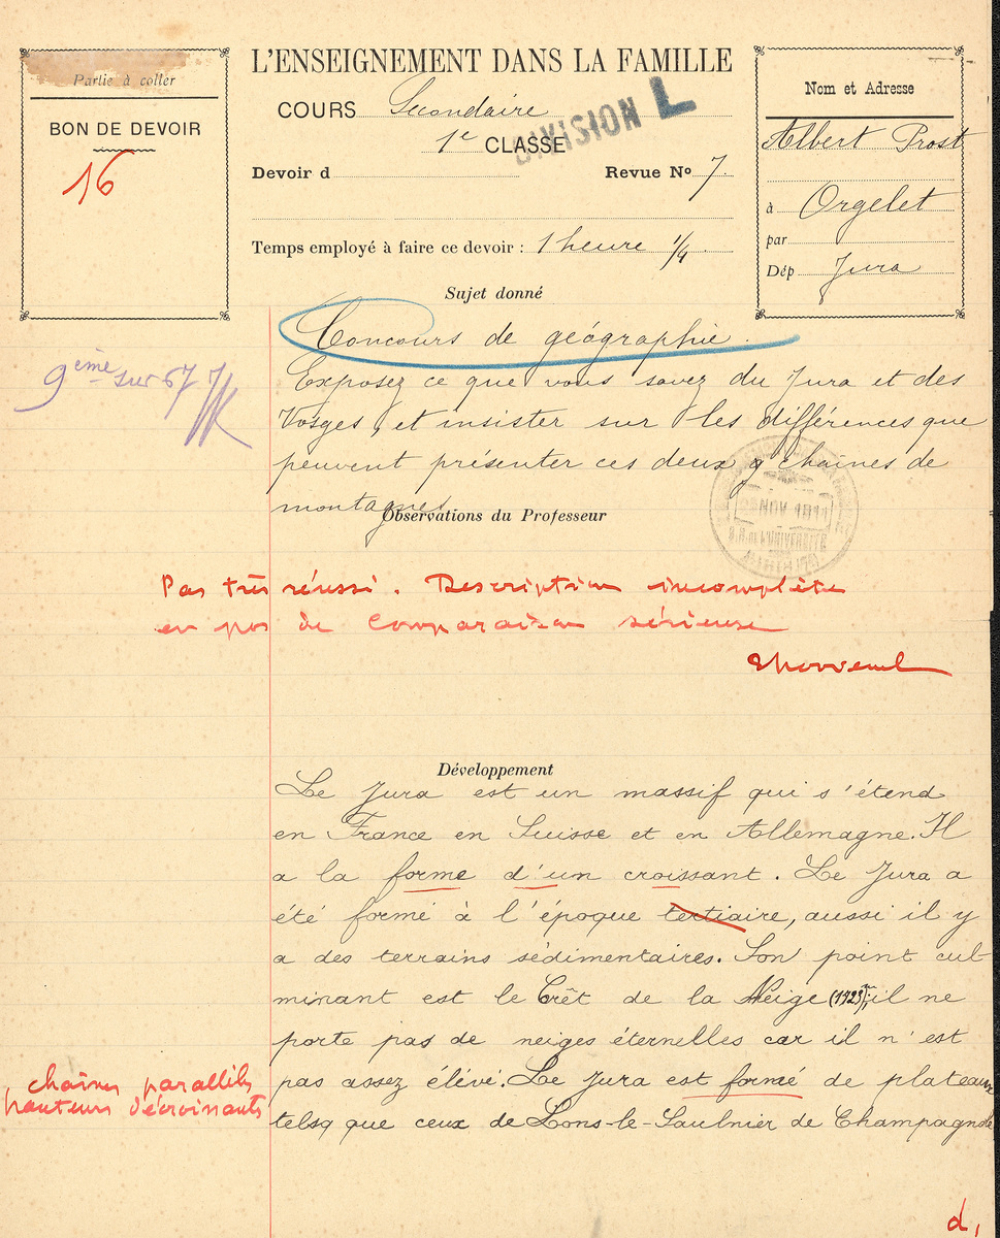 Partie à coller
BON DE DEVOIR
16
L'ENSEIGNEMENT DANS LA FAMILLE
COURS Secondaire
1e CLASSE
DIVISION L
Devoir d
Revue No 7
Temps employé à faire ce devoir : 1 heure 1/4
Nom et Adresse
Albert Prost
à Orgelet
par
Dép Jura
Sujet donné
9ème sur 67
Concours de géographie.
Exposez ce que vous savez du Jura et des
Vosges, et insister sur les différences que
peuvent présenter ces deux gdes chaînes de
montagnes
Observations du Professeur
NOV 1911
Pas très réussi. Description incomplète
en pas de comparaison sérieuse
Développement
Le Jura est un massif qui s'étend
en France en Suisse et en Allemagne. Il
a la forme d'un croissant. Le Jura a
été formé à l'époque tertiaire, aussi il y
a des terrains sédimentaires. Son point cul-
minant est le Crêt de la Neige (1723m); il ne
porte pas de neiges éternelles car il n'est
pas assez élevé. Le Jura est formé de plateaux
telsq que ceux de Lons-le-Saulnier de Champagnole
chaînes parallèles
hauteurs décroissantes
d,